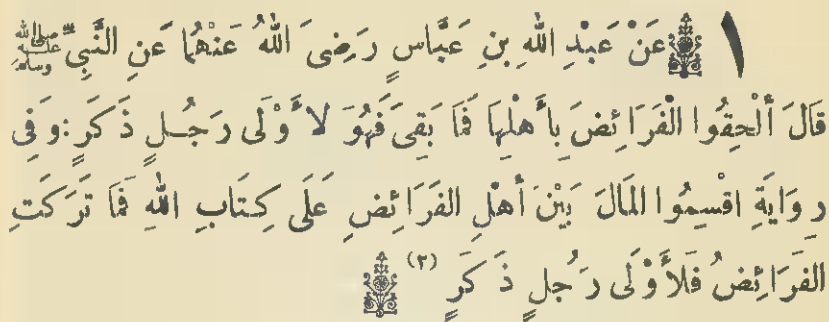 ١ عَنْ عَبْدِ اللهِ بنِ عَبَّاسٍ رَضِىَ اللهُ عَنْهُمَا عَنِ النَّبِىِّ صلى الله عليه وسلم
قَالَ أَلْحِقُوا الْفَرَائِضَ بِأَهْلِهَا فَمَا بَقِىَ فَهُوَ لأَوْلَى رَجُلٍ ذَكَرٍ : وَفِى
رِوَايَةِ اقْسِمُوا المَالَ بَيْنَ أَهْلِ الفَرَائِضِ عَلَى كِتَابِ اللهِ فَمَا تَرَكَتِ
الفَرَائِضُ فَلأَوْلَى رَجُلٍ ذَكَرٍ (٢)